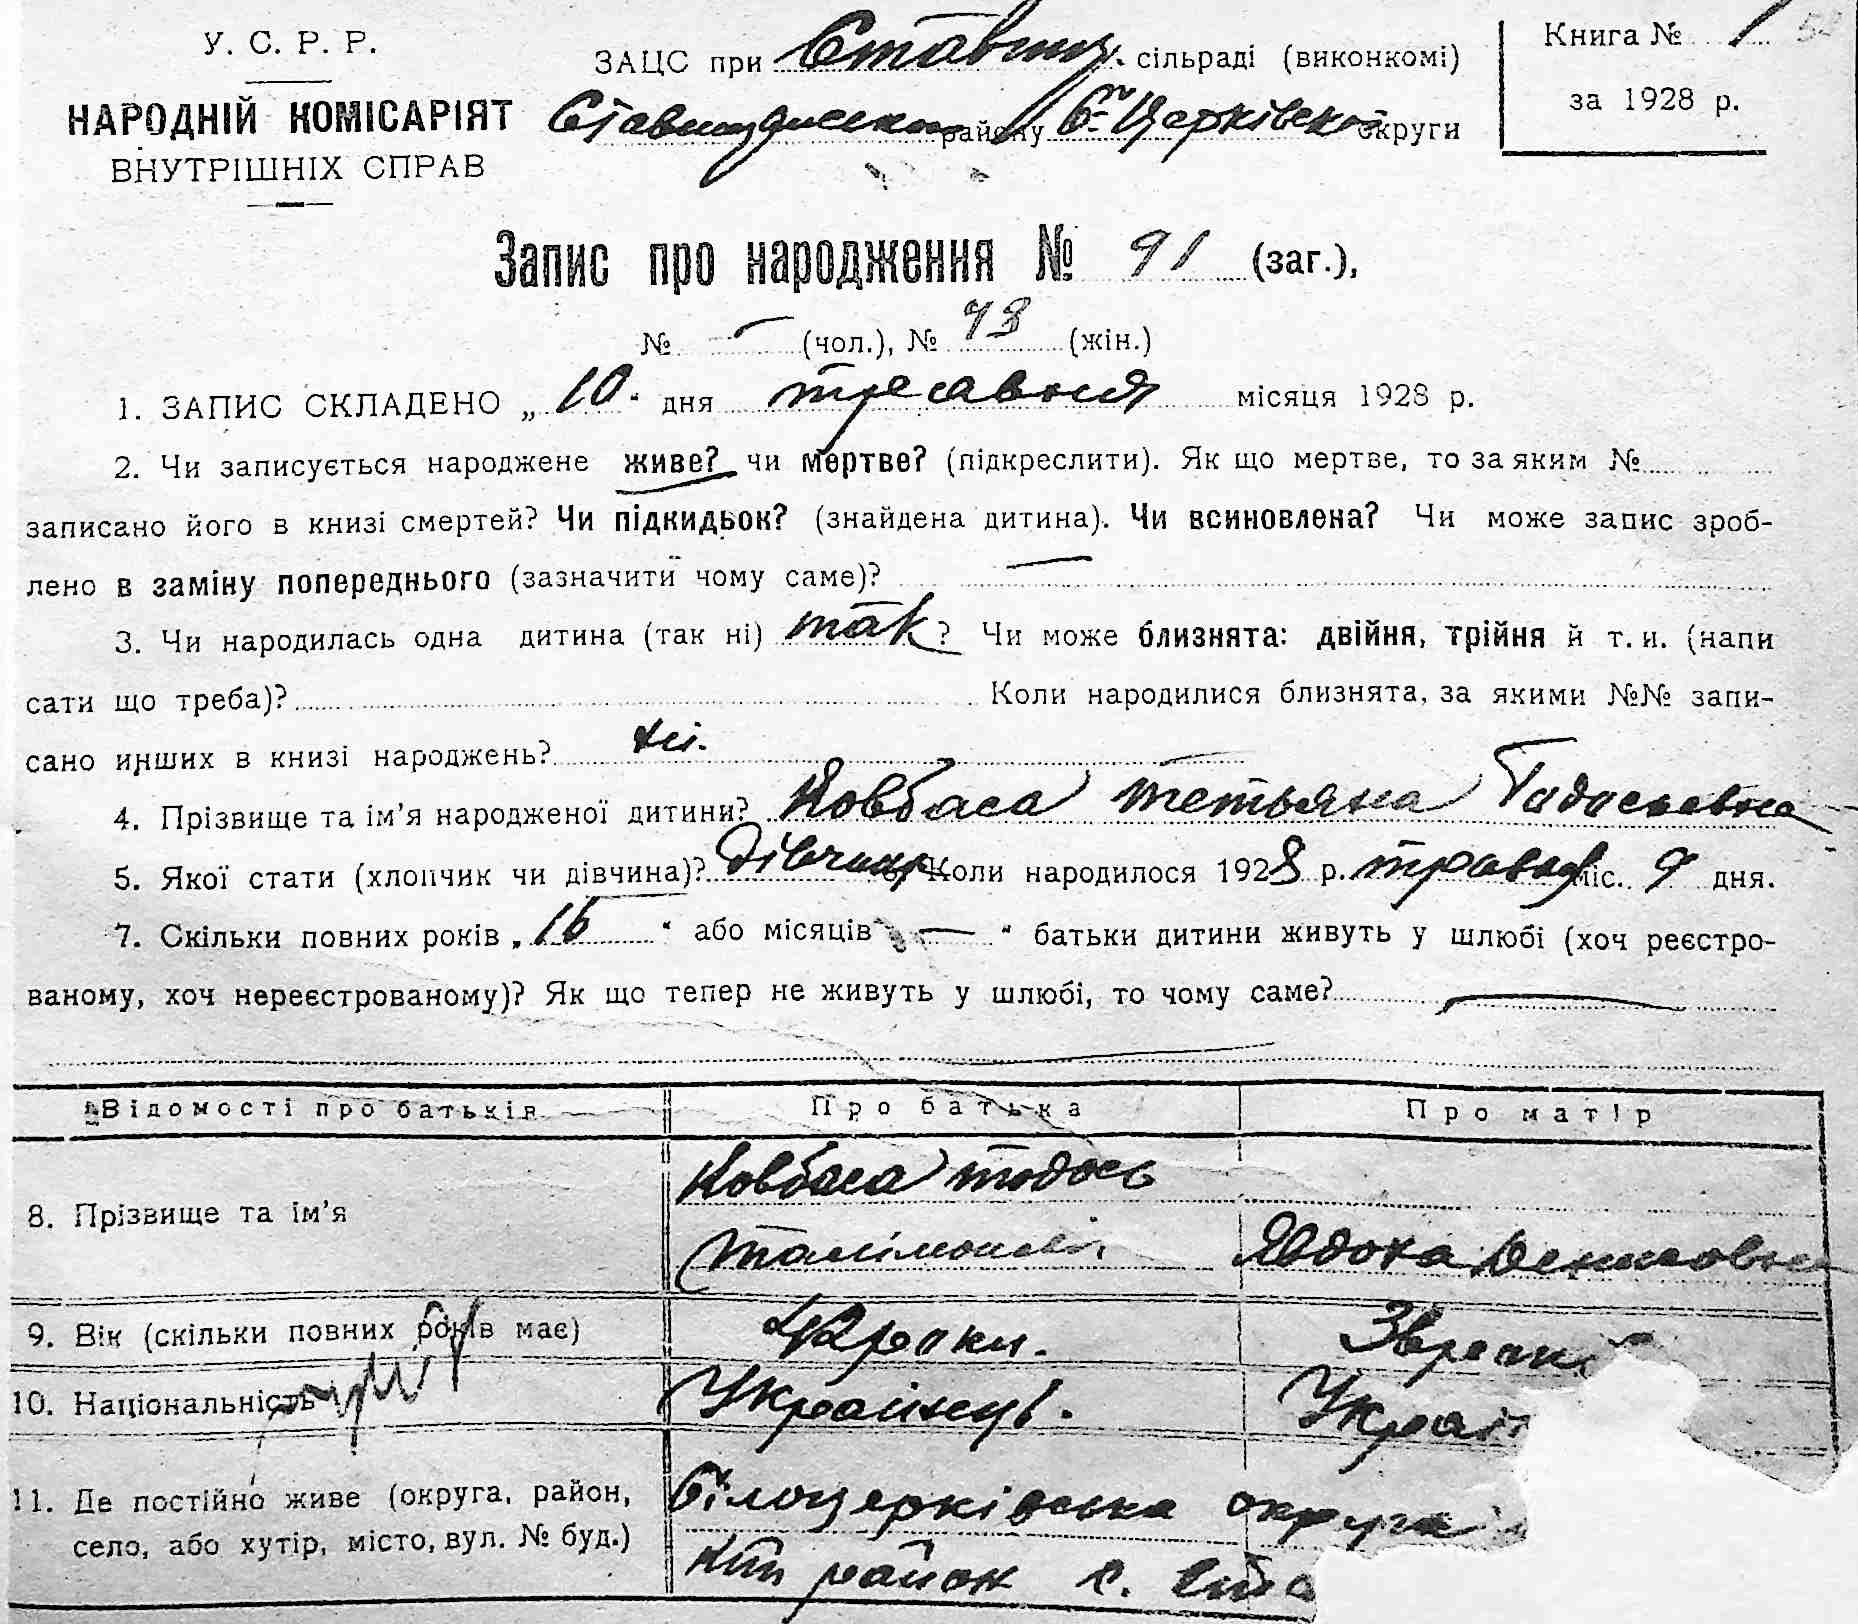 У. С. Р. Р.
НАРОДНІЙ КОМІСАРІЯТ
ВНУТРІШНІХ СПРАВ
ЗАЦС при Ставищ. сільраді (виконкомі)
району Б-Церківської округи
Книга № 1
за 1928 р.
Запис про народження № 91 (заг.),
№ — (чол.), № 43 (жін.)
1. ЗАПИС СКЛАДЕНО „ 10 " дня травня місяця 1928 р.
2. Чи записується народжене живе? чи мертве? (підкреслити). Як що мертве, то за яким №
записано його в книзі смертей? Чи підкидьок? (знайдена дитина). Чи всиновлена? Чи може запис зроб-
лено в заміну попереднього (зазначити чому саме)? —
3. Чи народилась одна дитина (так ні) так ? Чи може близнята: двійня, трійня й т. и. (напи
сати що треба)? Коли народилися близнята, за якими №№ запи-
сано инших в книзі народжень? ні.
4. Прізвище та ім'я народженої дитини? Ковбаса Тетьяна Тодосьевна
5. Якої стати (хлопчик чи дівчина)? дівчина Коли народилося 1928 р. травня міс. 9 дня.
7. Скільки повних років „ 16 " або місяців „ — " батьки дитини живуть у шлюбі (хоч реєстро-
ваному, хоч нереєстрованому)? Як що тепер не живуть у шлюбі, то чому саме? —
Відомості про батьків Про батька Про матір
8. Прізвище та ім'я Ковбаса Тодось
Явдоха Денисовна
9. Вік (скільки повних років має) 42 роки.
10. Національність Українці. Украї
11. Де постійно живе (округа, район, Білоцерківська округа
село, або хутір, місто, вул. № буд.) район с. Ста